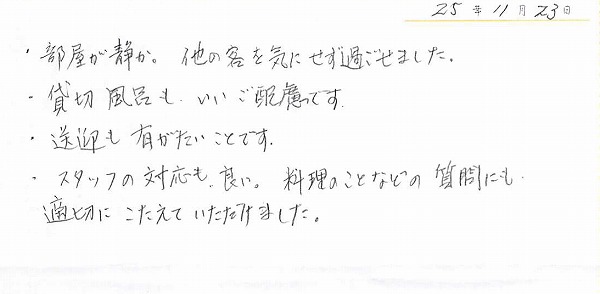 25年11月23日
・部屋が静か。他の客を気にせず過ごせました。
・貸切風呂も、いいご配慮です
・送迎も有がたいことです。
・スタッフの対応も、良い。料理のことなどの質問にも、
適切にこたえていただけました。